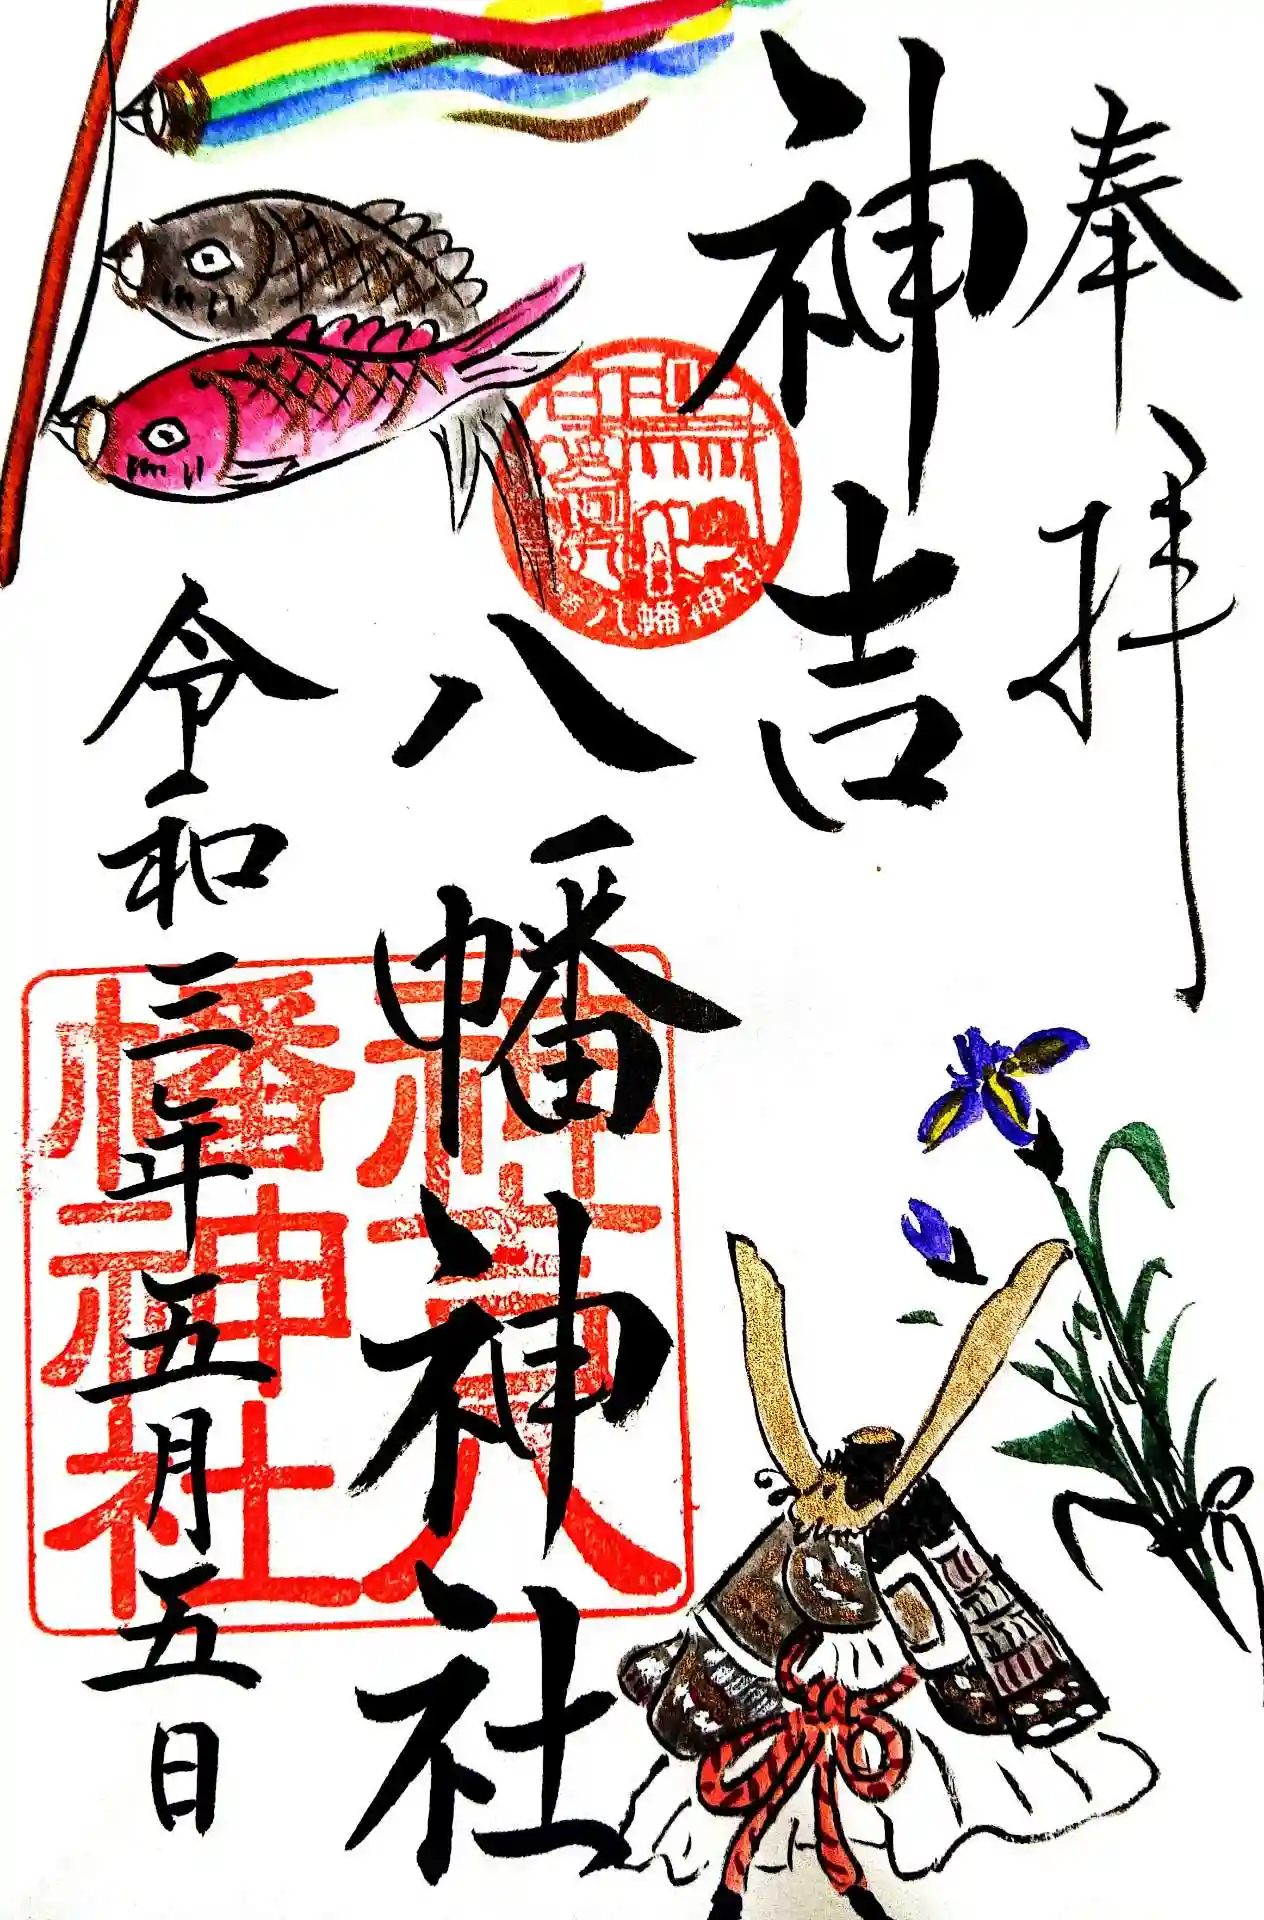 奉拝
神吉
八幡神社
令和三年五月五日
八幡神社
神吉八
幡神社